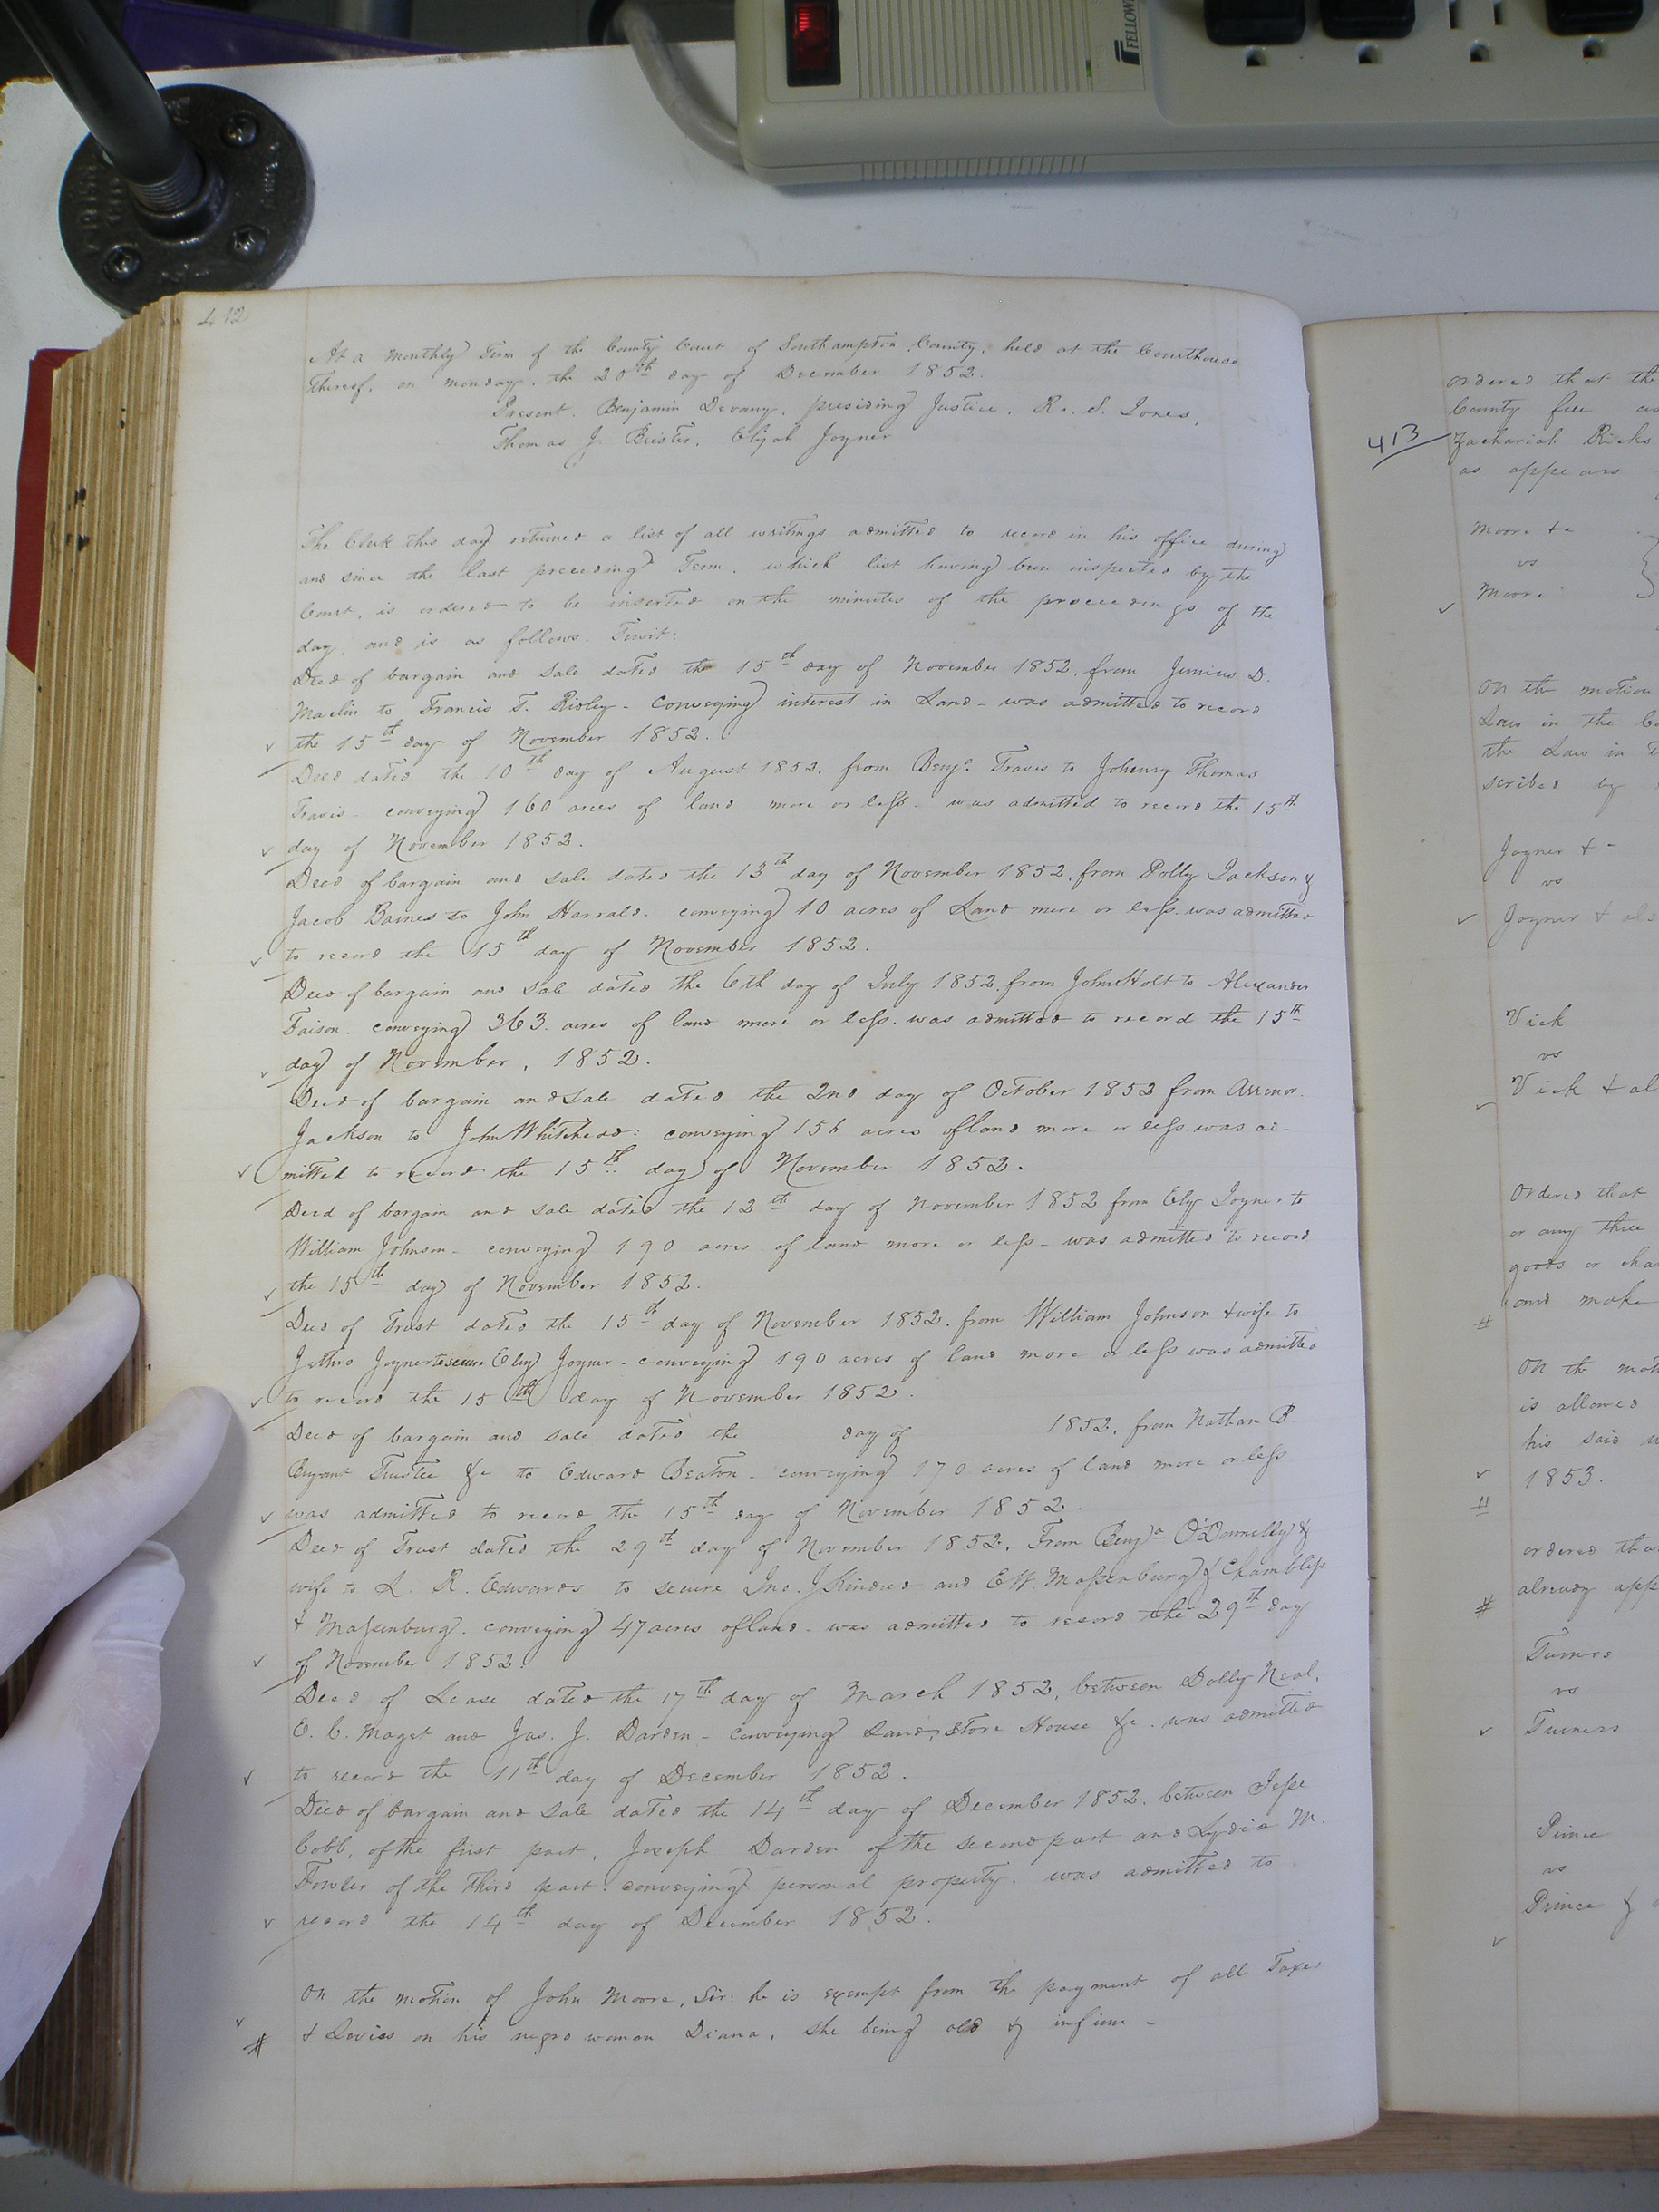 FELLOW
412
At a monthly Term of the County Court of Southampton County, held at the Courthouse
thereof, on monday, the 20th day of December 1852.
Present. Benjamin Devany, presiding Justice, Ro. S. Jones,
Thomas J. Brister, Elijah Joyner
The Clerk this day returned a list of all writings admitted to record in his office during
and since the last preceeding Term, which list having been inspected by the
Court, is ordered to be inserted on the minutes of the proceedings of the
day, and is as follows. Towit:
Deed of bargain and Sale dated the 15th day of November 1852, from Junius D.
Maclin to Francis T. Ridley - Conveying interest in Land - was admitted to record
the 15th day of November 1852.
Deed dated the 10th day of August 1852, from Benja. Travis to Johenry Thomas
Travis - conveying 160 acres of land more or less - was admitted to record the 15th
day of November 1852.
Deed of bargain and sale dated the 13th day of November 1852, from Polly Jackson &
Jacob Baines to John Harrald. conveying 10 acres of Land more or less. was admitted
to record the 15th day of November 1852.
Deed of bargain and Sale dated the 6th day of July 1852, from John Holt to Alexander
Faison. conveying 363. acres of land more or less. was admitted to record the 15th
day of November, 1852.
Deed of bargain and sale dated the 2nd day of October 1852 from
Jackson to John Whitehead. conveying 156 acres of land more or less. was ad-
mitted to record the 15th day of November 1852.
Deed of bargain and sale dated the 12th day of November 1852 from Ely Joyner to
William Johnson - conveying 190 acres of land more or less - was admitted to record
the 15th day of November 1852.
Deed of Trust dated the 15th day of November 1852. from William Johnson & wife to
Jethro Joyner to secure Ely Joyner - conveying 190 acres of land more or less was admitted
to record the 15th day of November 1852.
Deed of bargain and sale dated the day of 1852, from Nathan B.
Bryant Trustee &c to Edward Beaton - conveying 170 acres of land more or less.
was admitted to record the 15th day of November 1852.
Deed of Trust dated the 29th day of November 1852, From Benja O'Donnelly &
wife to L. R. Edwards to secure Jno. J Kindred and E W. Massenburg & Chambliss
& Massenburg. conveying 47 acres of land - was admitted to record the 29th day
of November 1852.
Deed of Lease dated the 17th day of March 1852, between Dolly Neal,
E. C. Maget and Jas. J. Darden - conveying Land, Store House &c. was admitted
to record the 11th day of December 1852.
Deed of bargain and Sale dated the 14th day of December 1852. between Jesse
Cobb, of the first part, Joseph Darden of the second part and Lydia M.
Fowler of the third part. conveying personal property. was admitted to
record the 14th day of December 1852.
On the motion of John Moore, Sir: he is exempt from the payment of all Taxes
# & Levies on his negro woman Diana, she being old & infirm -
ordered that the
County free as
413 Zachariah Ricks
as appears
Moore &c
vs
Moore
On the motion
Law in the
the Law in
scribed by
Joyner & -
vs
Joyner & als
Vick
vs
Vick & al
Ordered that
or any three
goods or cha
and make
On the mot
is allowed
his said
1853.
ordered tha
# already app
Turners
vs
Turners
Prince
vs
Prince &